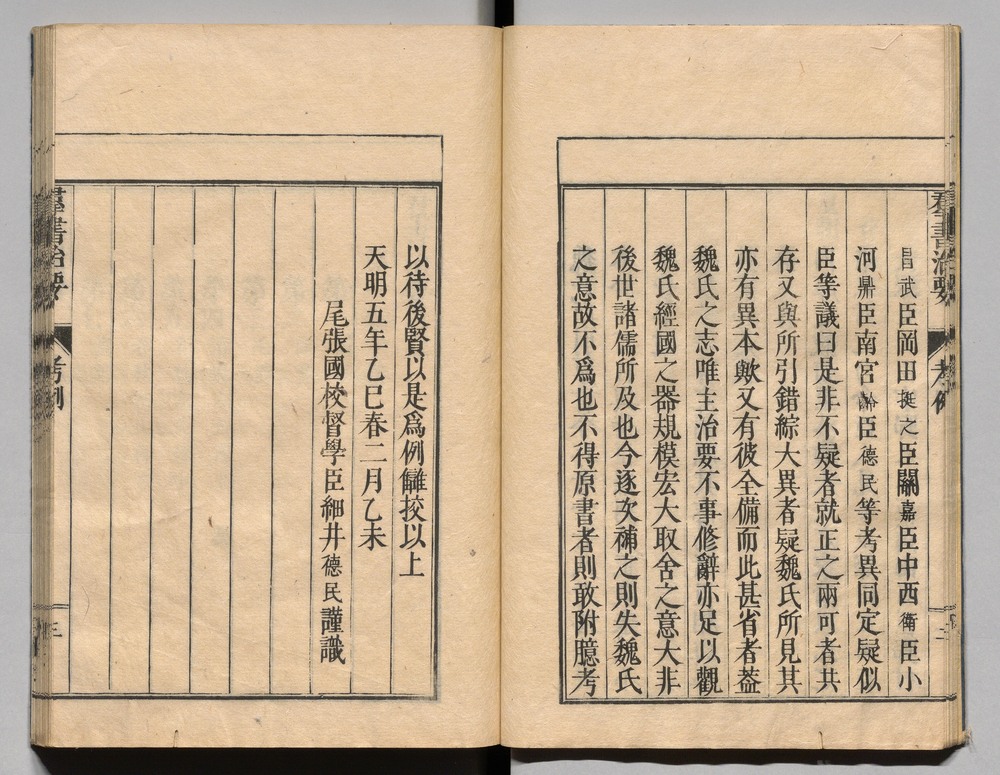 羣書治要 考例
昌武臣岡田挺之臣關嘉臣中西衛臣小
河鼎臣南宮齡臣德民等考異同定疑似
臣等議曰是非不疑者就正之兩可者共
存又與所引錯綜大異者疑魏氏所見其
亦有異本歟又有彼全備而此甚省者蓋
魏氏之志唯主治要不事修辭亦足以觀
魏氏經國之器規模宏大取舍之意大非
後世諸儒所及也今逐次補之則失魏氏
之意故不爲也不得原書者則敢附臆考
以待後賢以是爲例讎挍以上
天明五年乙巳春二月乙未
尾張國校督學臣細井德民謹識
羣書治要 考例 三